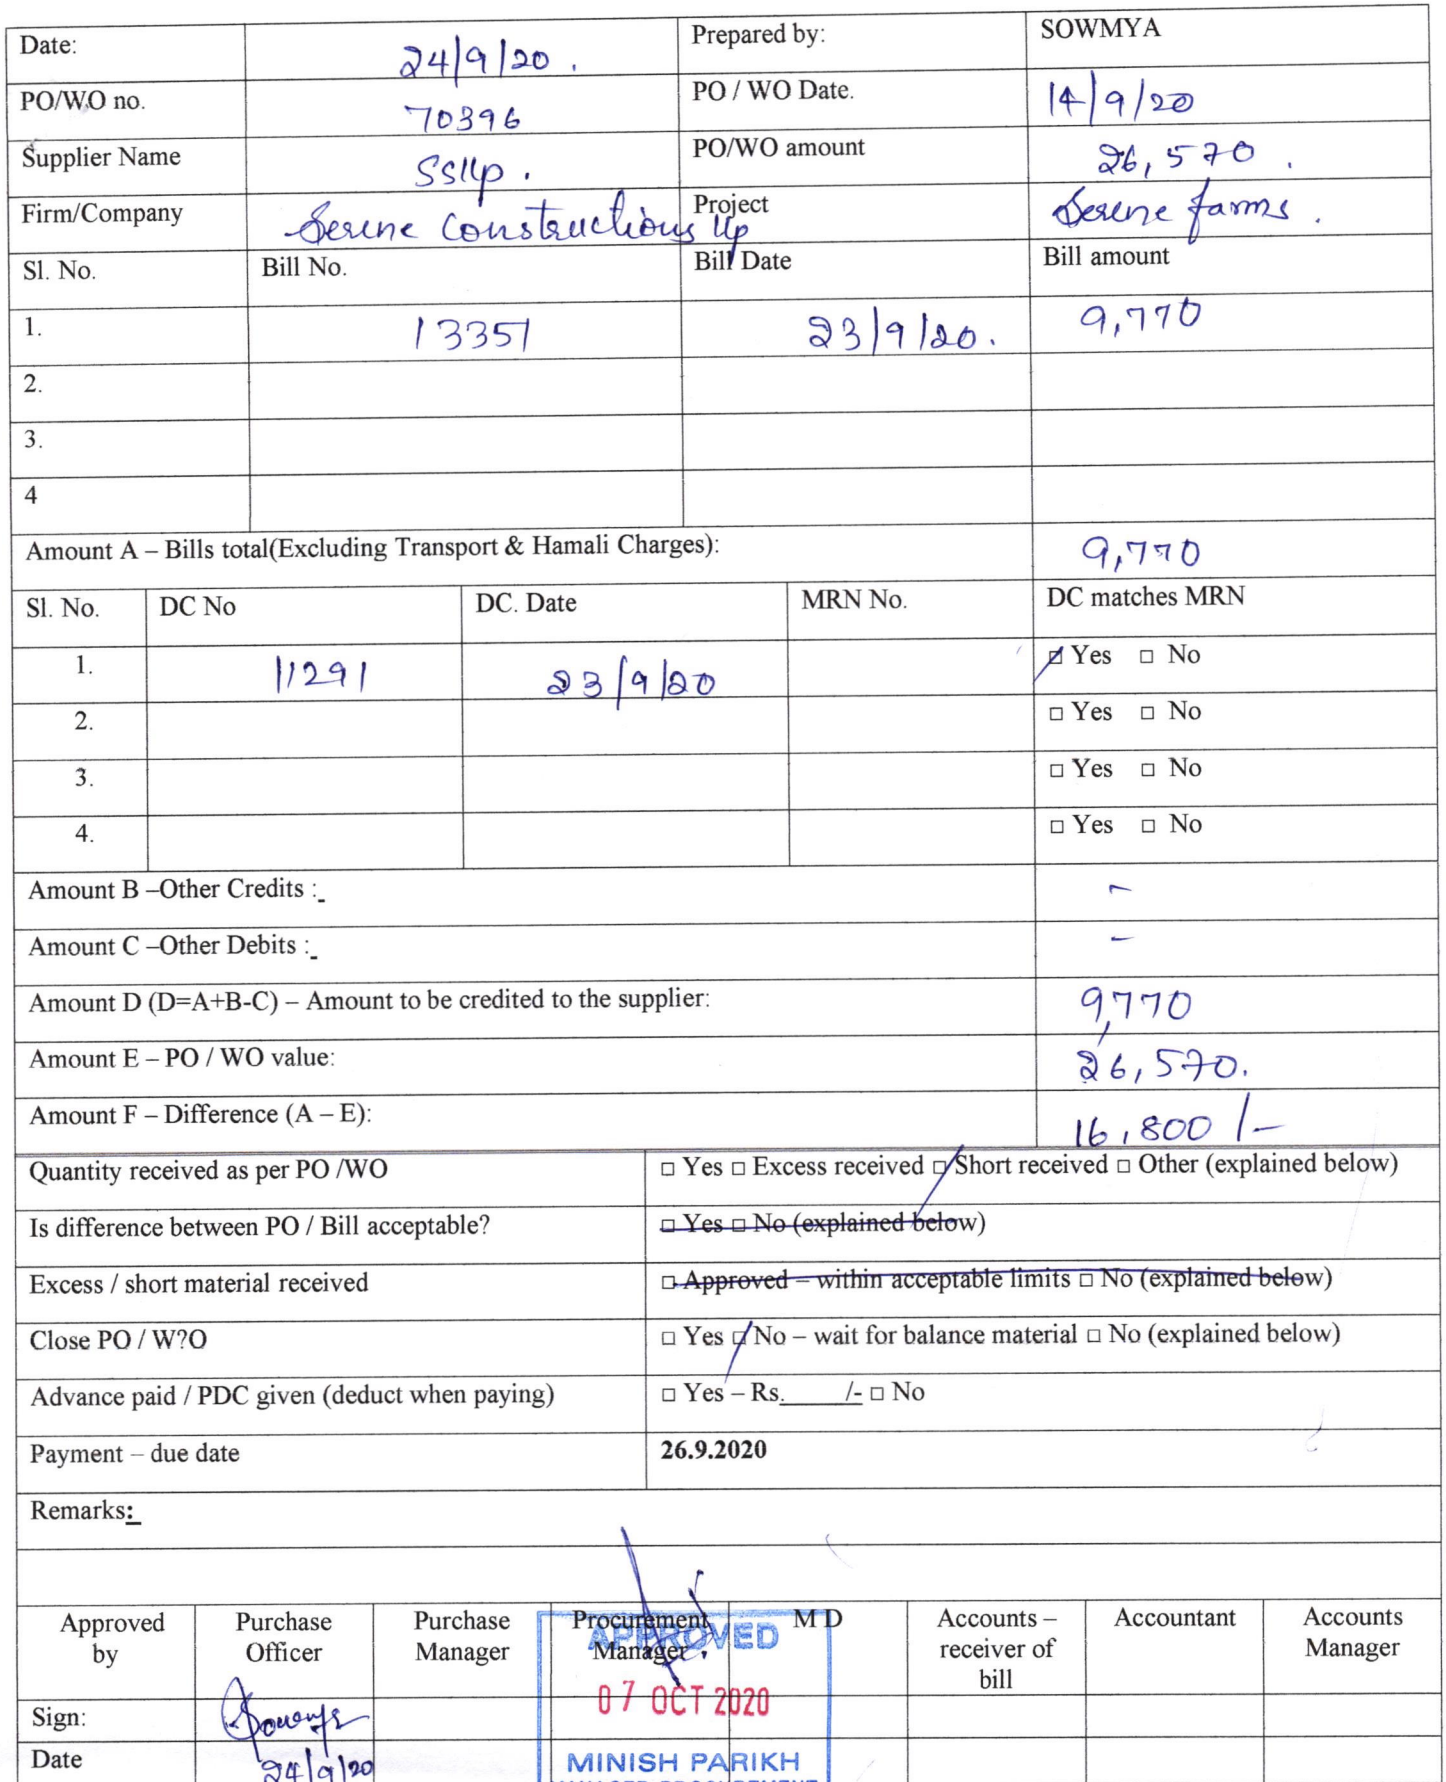 Date: 24/9/20. Prepared by: SOWMYA
PO/WO no. 70396 PO / WO Date. 14/9/20
Supplier Name SSllp. PO/WO amount 26,570.
Firm/Company Serene Constructions llp Project Serene farms.
Sl. No. Bill No. Bill Date Bill amount
1. 13351 23/9/20. 9,770
2.
3.
4
Amount A – Bills total(Excluding Transport & Hamali Charges): 9,770
Sl. No. DC No DC. Date MRN No. DC matches MRN
1. 11291 23/9/20 □ Yes □ No
2. □ Yes □ No
3. □ Yes □ No
4. □ Yes □ No
Amount B –Other Credits : -
Amount C –Other Debits : -
Amount D (D=A+B-C) – Amount to be credited to the supplier: 9,770
Amount E – PO / WO value: 26,570.
Amount F – Difference (A – E): 16,800 /-
Quantity received as per PO /WO □ Yes □ Excess received □ Short received □ Other (explained below)
Is difference between PO / Bill acceptable? □ Yes □ No (explained below)
Excess / short material received □ Approved – within acceptable limits □ No (explained below)
Close PO / W?O □ Yes □ No – wait for balance material □ No (explained below)
Advance paid / PDC given (deduct when paying) □ Yes – Rs.____/- □ No
Payment – due date 26.9.2020
Remarks:
Approved by Purchase Officer Purchase Manager Procurement Manager M D Accounts – receiver of bill Accountant Accounts Manager
APPROVED
07 OCT 2020
Sign: Sowmya
Date 24/9/20
MINISH PARIKH